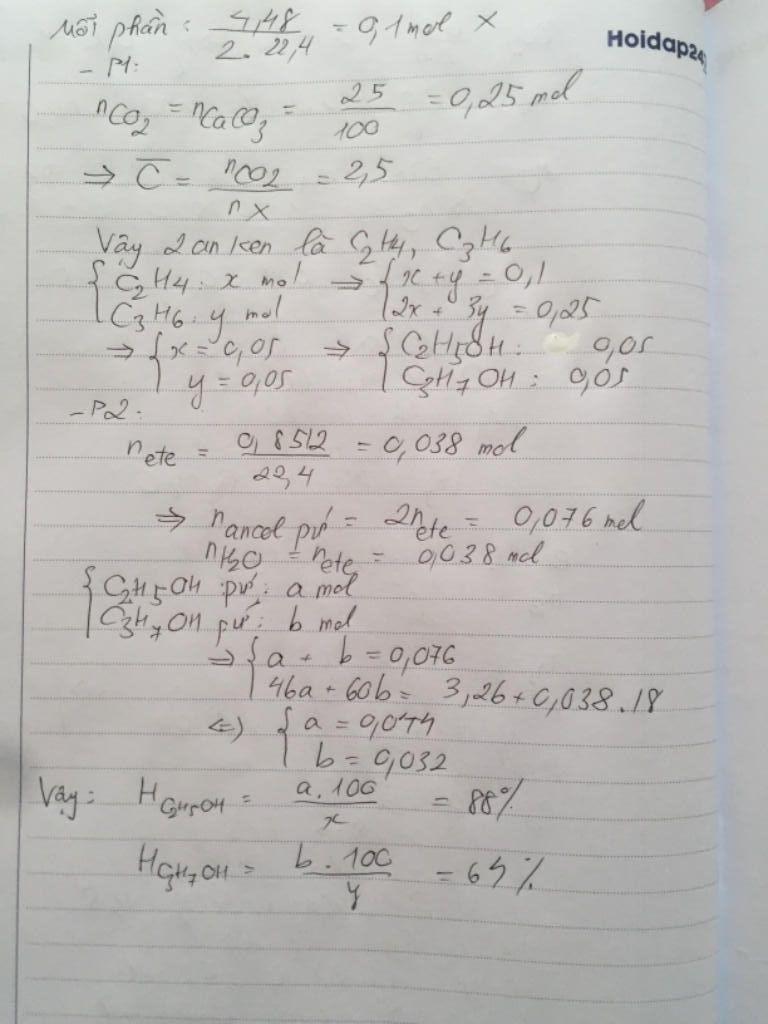 Mỗi phần : 4,48 / 2 . 22,4 = 0,1 mol X
Hoidap24
- P1:
nCO2 = nCaCO3 = 25 / 100 = 0,25 mol
⇒ C̅ = nCO2 / nX = 2,5
Vậy 2 anken là C2H4, C3H6
{ C2H4 : x mol ⇒ { x + y = 0,1
C3H6 : y mol 2x + 3y = 0,25
⇒ { x = 0,05 ⇒ { C2H5OH : 0,05
y = 0,05 C3H7OH : 0,05
- P2 :
nete = 0,8512 / 22,4 = 0,038 mol
⇒ nancol pứ = 2nete = 0,076 mol
nH2O = nete = 0,038 mol
{ C2H5OH pứ : a mol
C3H7OH pứ : b mol
⇒ { a + b = 0,076
46a + 60b = 3,26 + 0,038 . 18
⇔ { a = 0,044
b = 0,032
Vậy : HC2H5OH = a . 100 / x = 88%
HC3H7OH = b . 100 / y = 64 %